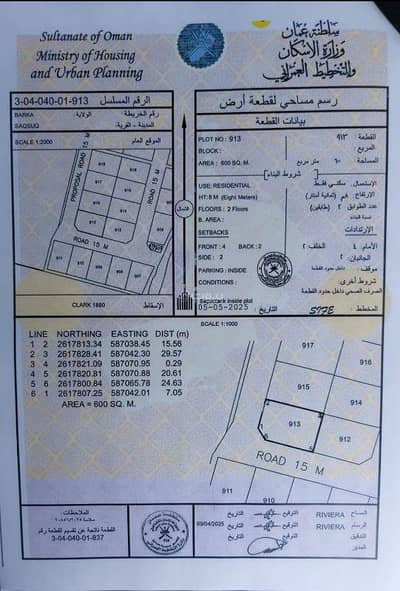 Sultanate of Oman
Ministry of Housing
and Urban Planning
سلطنة عمان
وزارة الإسكان
والتخطيط العمراني
3-04-040-01-913 الرقم المسلسل
BARKA الولاية - رقم الخريطة
SAQSUQ المدينة - القرية
SCALE 1:2000 الموقع العام
PROPOSAL ROAD 15 M
ROAD 15 M
ROAD 15 M
CLARK 1880 الإسقاط
الشمال
رسم مساحي لقطعة أرض
بيانات القطعة
PLOT NO : 913 ٩١٣ القطعة
BLOCK : المربع
AREA : 600 SQ. M. متر مربع المساحة
( شروط البناء )
USE: RESIDENTIAL سكني فقط الإستعمال
HT:8 M (Eight Meters) الإرتفاع
FLOORS : 2 Floors عدد الطوابق ٢ (طابقين)
B. AREA : نسبة البناء
SETBACKS الإرتدادات
FRONT : 4 BACK : 2 الأمام ٤ الخلف: ٢
SIDE : 2 الجانبان ٢
PARKING : INSIDE موقف: داخل حدود القطعة
CONDITIONS : شروط أخرى
الصرف الصحي داخل حدود القطعة
Sapiccark inside plot
05-05-2025 التاريخ : المخطط
SCALE 1:1000
LINE NORTHING EASTING DIST (m)
1 2 2617813.34 587038.45 15.56
2 3 2617828.41 587042.30 29.57
3 4 2617821.09 587070.95 0.29
4 5 2617820.81 587070.88 20.61
5 6 2617800.84 587065.78 24.63
6 1 2617807.25 587042.01 7.05
AREA = 600 SQ. M.
917
915
914
913
912
ROAD 15 M
911
910
الملاحظات
القطعة ناتجة عن تقسيم القطعة رقم
3-04-040-01-837
التاريخ التوقيع RIVIERA المساح
09/04/2025 التاريخ التوقيع RIVIERA الرسام
التاريخ التوقيع التدقيق
التاريخ التوقيع المدير